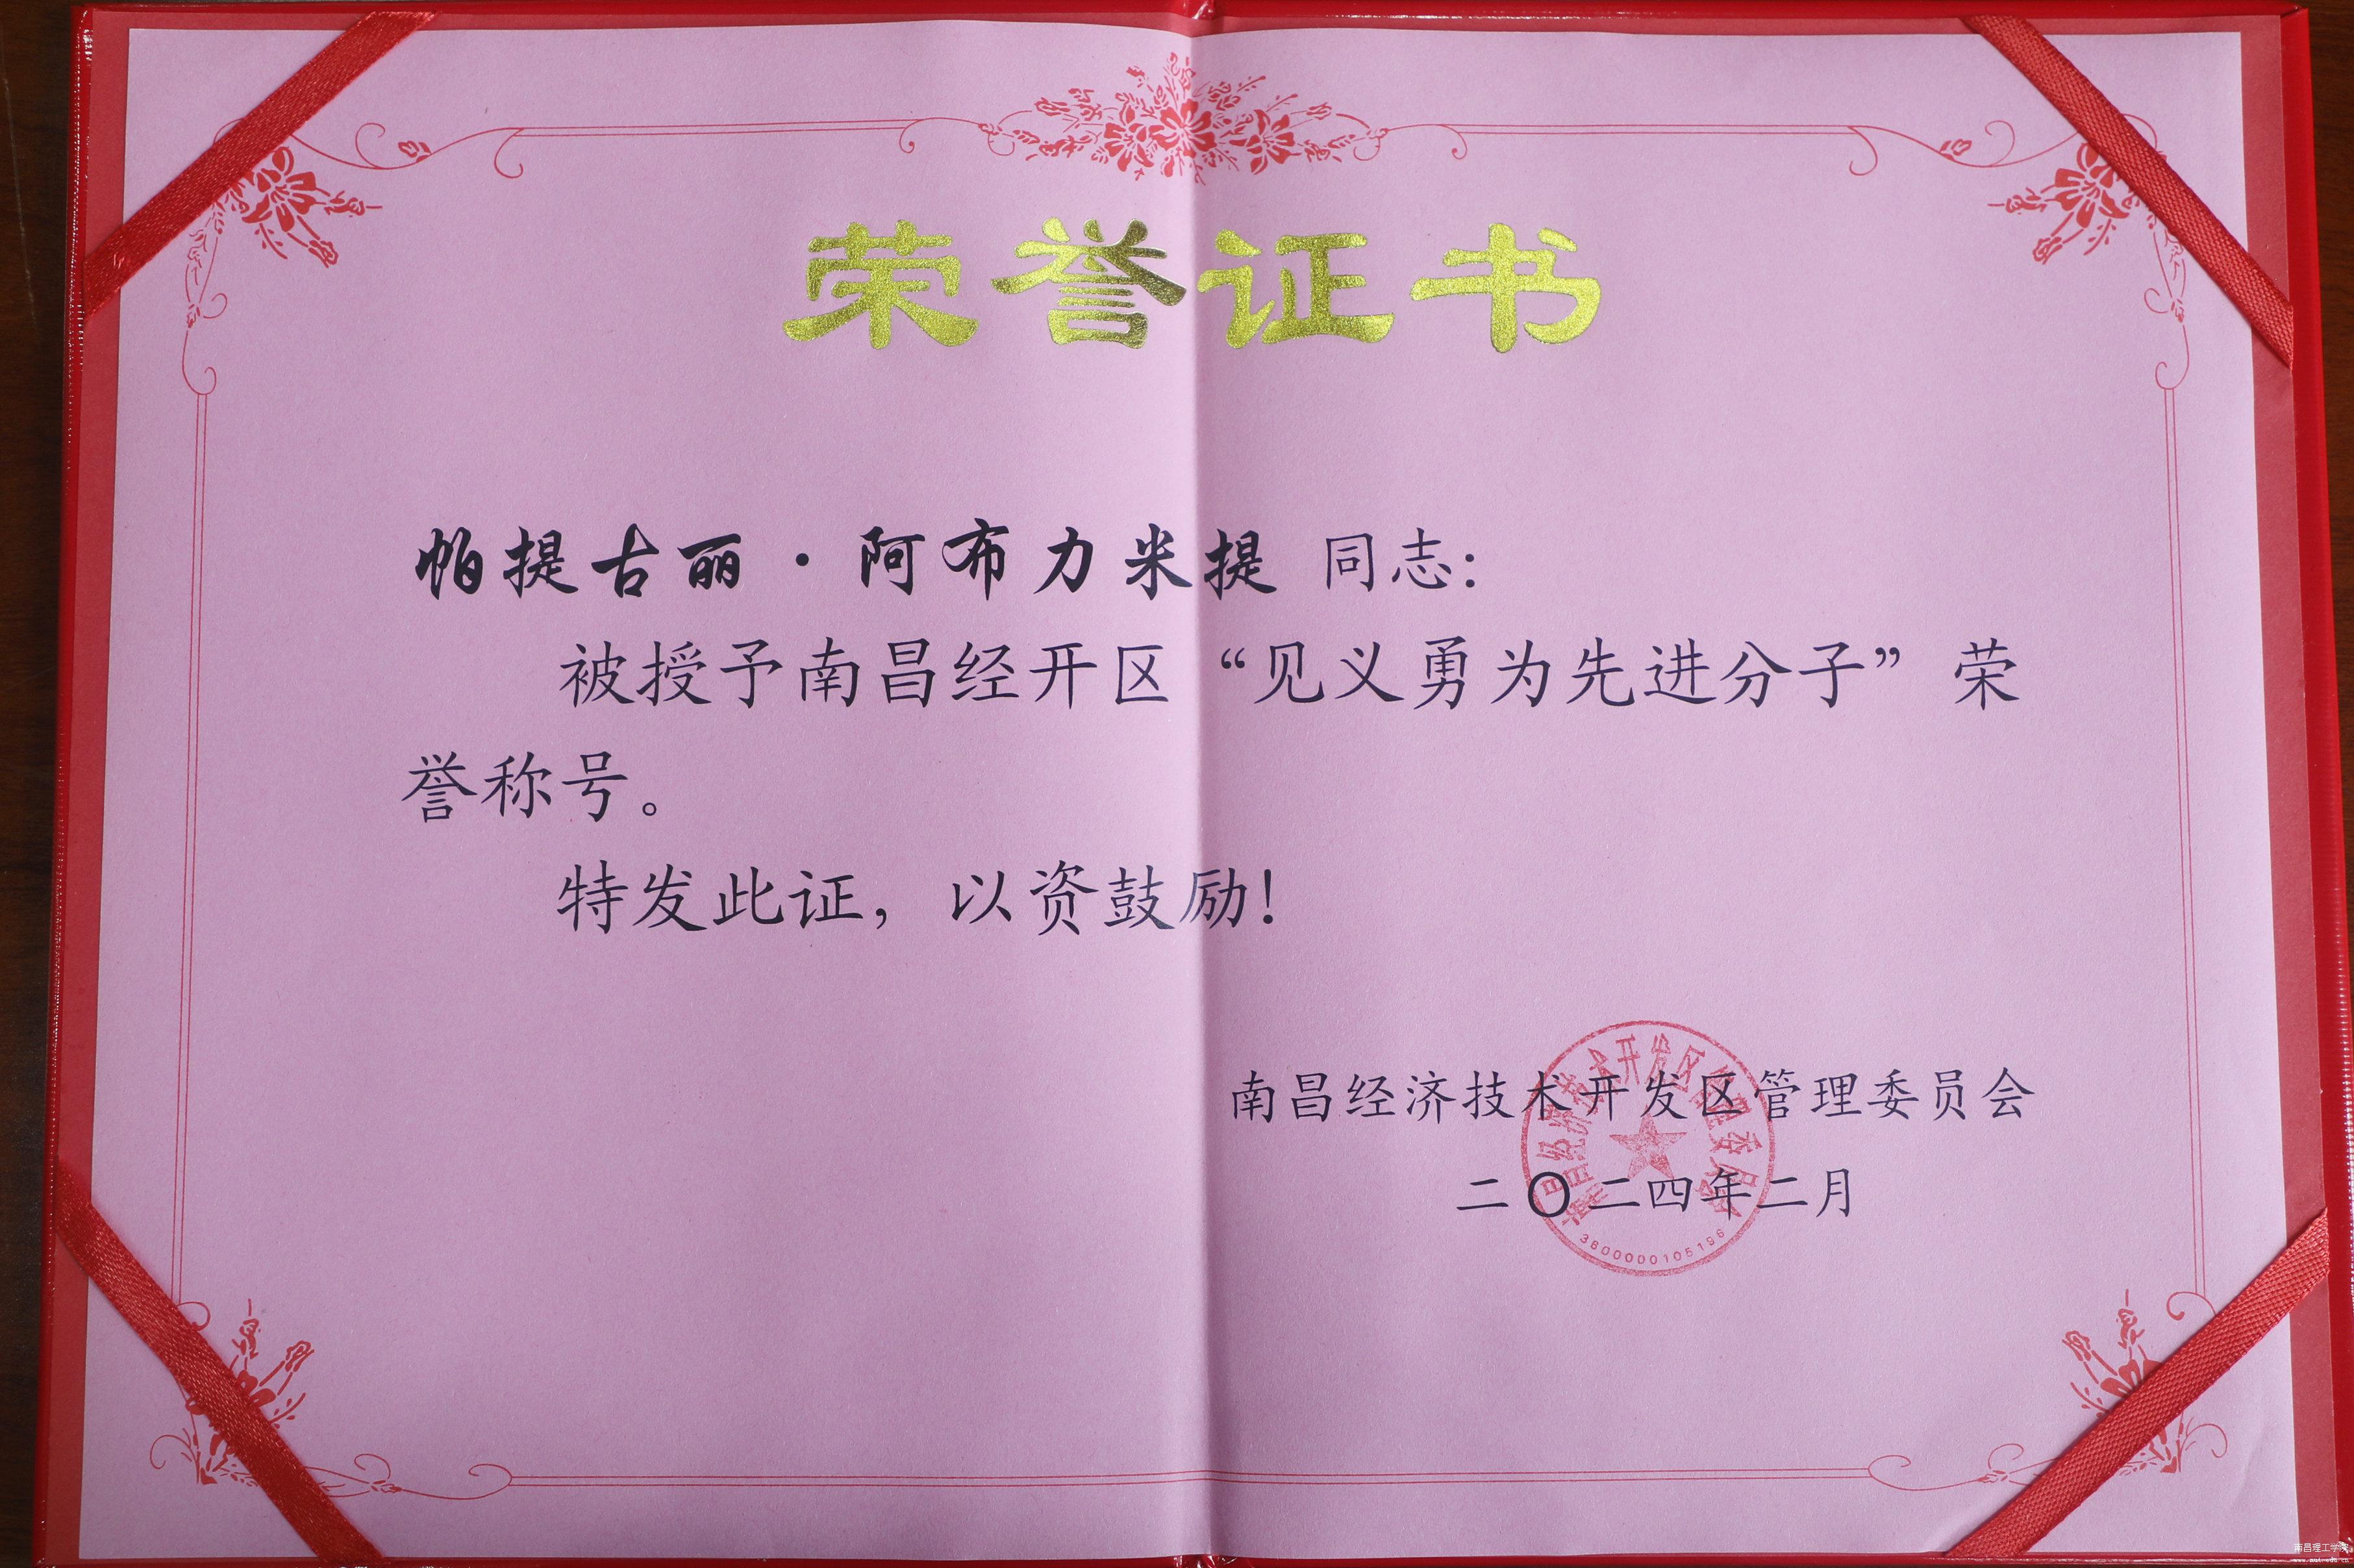 荣誉证书
帕提古丽·阿布力米提 同志：
被授予南昌经开区“见义勇为先进分子”荣
誉称号。
特发此证，以资鼓励！
南昌经济技术开发区管理委员会
二〇二四年二月
南昌经济技术开发区管理委员会
3600000105196
南昌理工学院